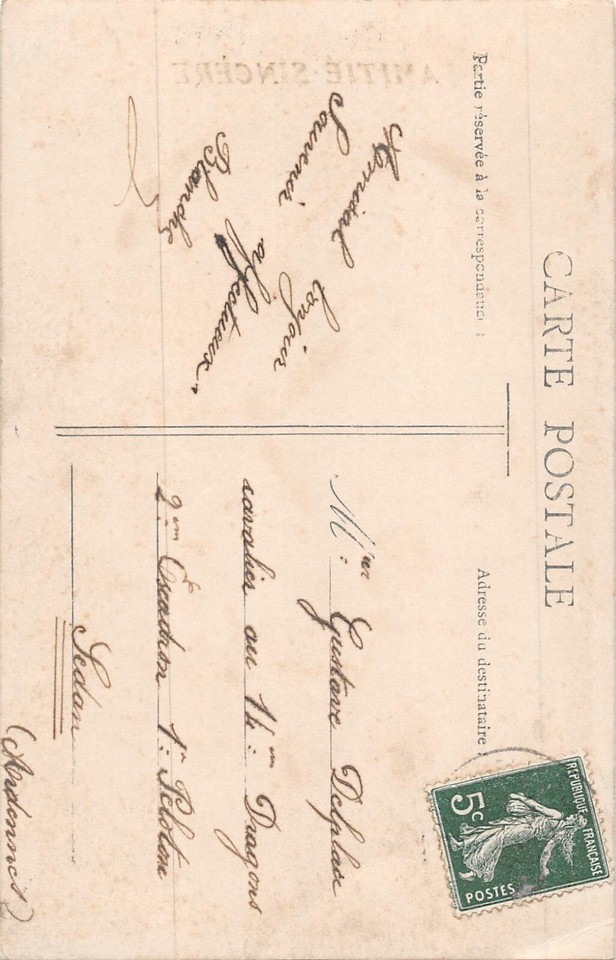 CARTE POSTALE
Partie réservée à la correspondance :
Adresse du destinataire :
AMITIÉ SINCÈRE
Amical
Souvenir
toujours
affectueux
Blanche
Mr Gustave Delplace
cavalier au 14me Dragons
2me Escadron 1r Peloton
Sedan
(Ardennes)
REPUBLIQUE FRANÇAISE
5c
POSTES